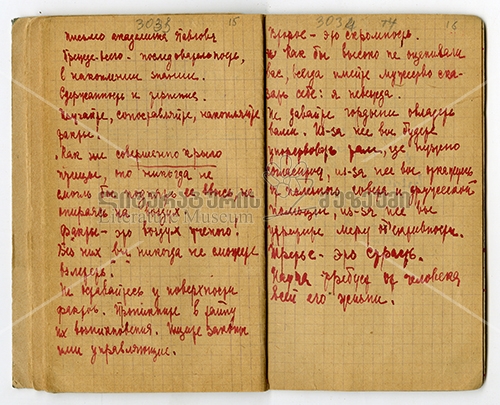 303 15
письмо академика Павлова
Прежде всего - последовательность,
в накоплении знании.
Сдержанность и терпение.
Изучайте, сопоставляйте, накопляйте
факты.
Как ни совершенно крыло
птицы, оно никогда не
смогло бы поднять ее ввысь, не
опираясь на воздух.
Факты - это воздух ученого.
Без них вы никогда не сможете
взлететь.
Не оставайтесь у поверхности
фактов. Проникайте в тайну
их возникновения. Ищите законы
ими управляющие.
303 16
Второе - это скромность.
как бы высоко не оценивали
вас, всегда имейте мужество ска-
зать себе: я невежда.
Не давайте гордыне овладеть
вами. Из-за нее вы будете
упорствовать там, где нужно
согласиться, из-за нее вы откажетесь
от полезного совета и дружеской
помощи, из-за нее вы
утратите меру объективности.
Третье - это страсть.
Наука требует от человека
всей его жизни.
ლიტერატურის მუზეუმი
Literature Museum